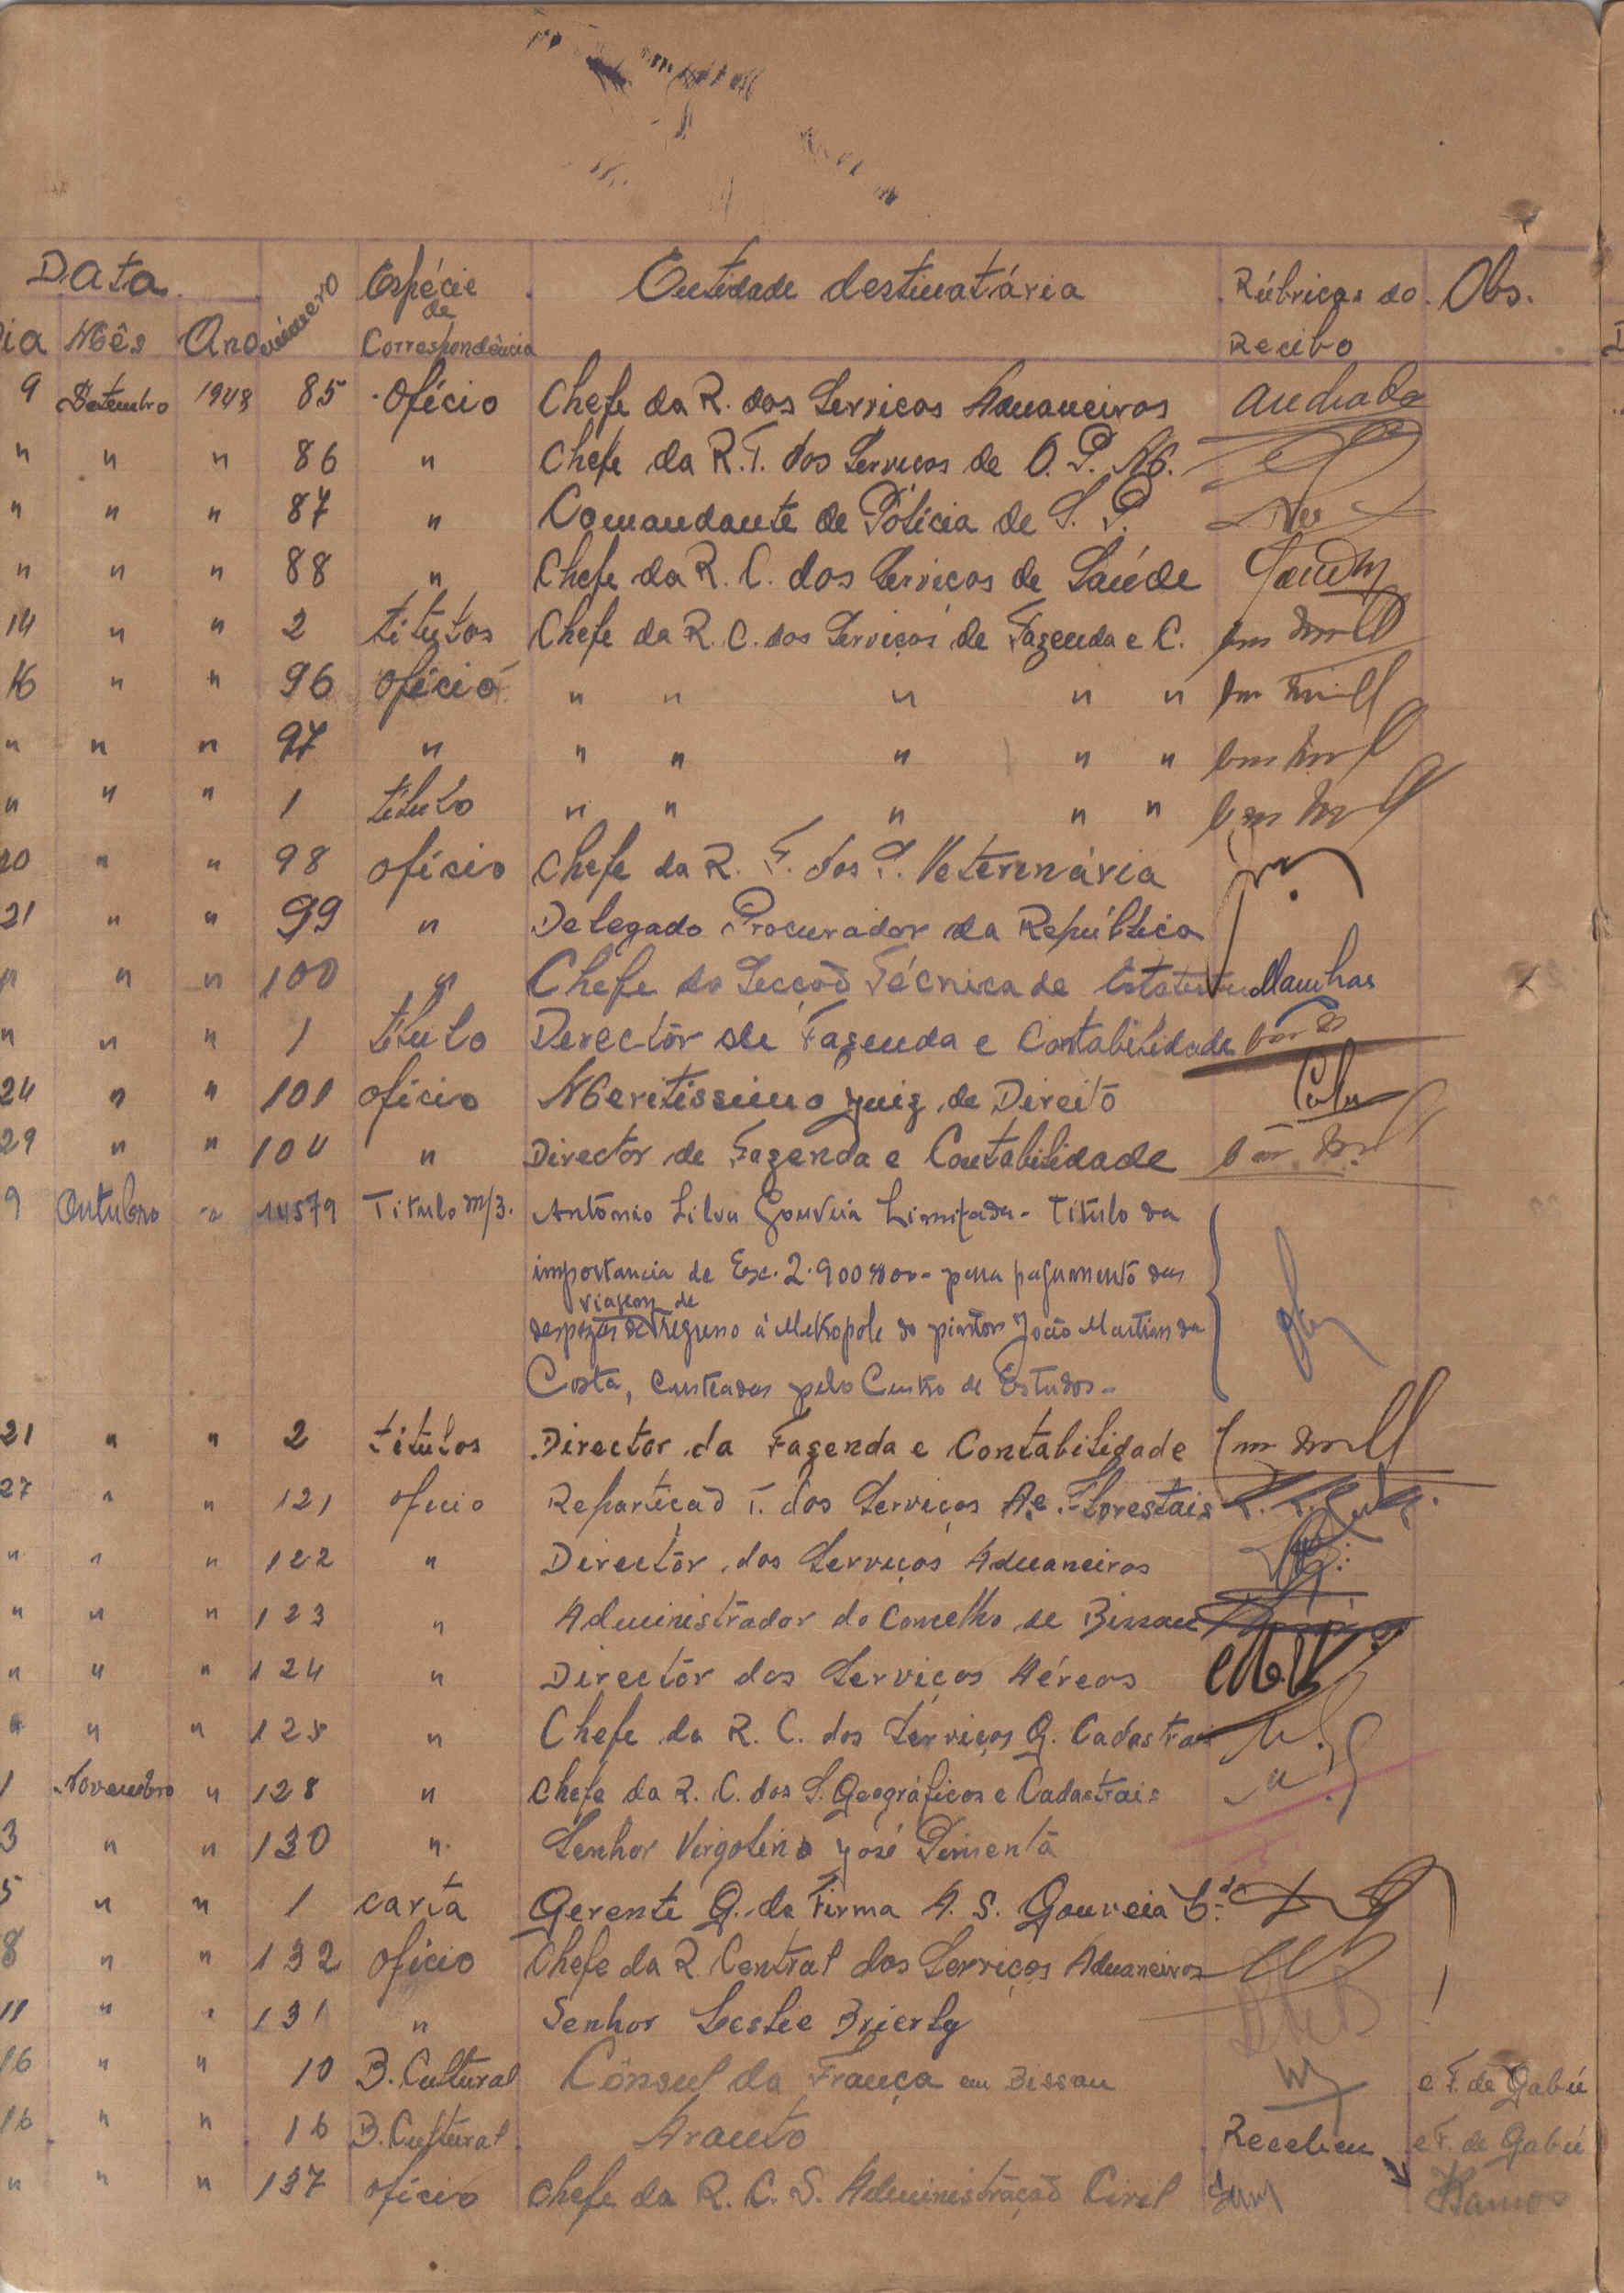 Data Número Espécie de Correspondência Entidade destinatária Rúbricas do Recibo Obs.
Dia Mês Ano
9 Setembro 1948 85 Ofício Chefe da R. dos Serviços Aduaneiros Andrade
" " " 86 " Chefe da R.T. dos Serviços de O. P. M.
" " " 87 " Comandante de Polícia de S. P.
" " " 88 " Chefe da R. C. dos Serviços de Saúde
14 " " 2 titulos Chefe da R. C. dos Serviços de Fazenda e C.
16 " " 96 Ofício " " " " "
" " " 97 " " " " " "
" " " 1 título " " " " "
20 " " 98 ofício Chefe da R. T. dos S. Veterenária
21 " " 99 " Delegado Procurador da República
" " " 100 " Chefe da Secção Técnica de
" " " 1 título Director de Fazenda e Contabilidade
24 " " 101 ofício Meritissimo Juiz de Direito
29 " " 104 " Director de Fazenda e Contabilidade
9 Outubro " 14579 Titulo m/3. António Silva Gouveia Limitada - Título da
importancia de Esc. 2.900$00 - para pagamento das
viagem de
despezas de regresso á Metropole do pintor João Martins da
Costa, custeadas pelo Centro de Estudos -
21 " " 2 títulos Director da Fazenda e Contabilidade
27 " " 121 ofício Repartição T. dos Serviços A. e Florestais
" " " 122 " Director dos Serviços Aduaneiros
" " " 123 " Administrador do Concelho de Bissau
" " " 124 " Director dos Serviços Aéreos
" " " 125 " Chefe da R. C. dos Serviços G. Cadastrais
1 Novembro " 128 " Chefe da R. C. dos S. Geográficos e Cadastrais
3 " " 130 " Senhor Vergolino José Pimenta
5 " " 1 carta Gerente G. da Firma A. S. Gouveia L.da
8 " " 132 ofício Chefe da R. Central dos Serviços Aduaneiros
11 " " 131 " Senhor Leslie Brierly
16 " " 10 B. Cultural Cônsul da França em Bissau e F. de Gabú
16 " " 16 B. Cultural Arauto Recebeu e F. de Gabú
" " " 137 ofício Chefe da R. C. S. Administração Civil Ramos